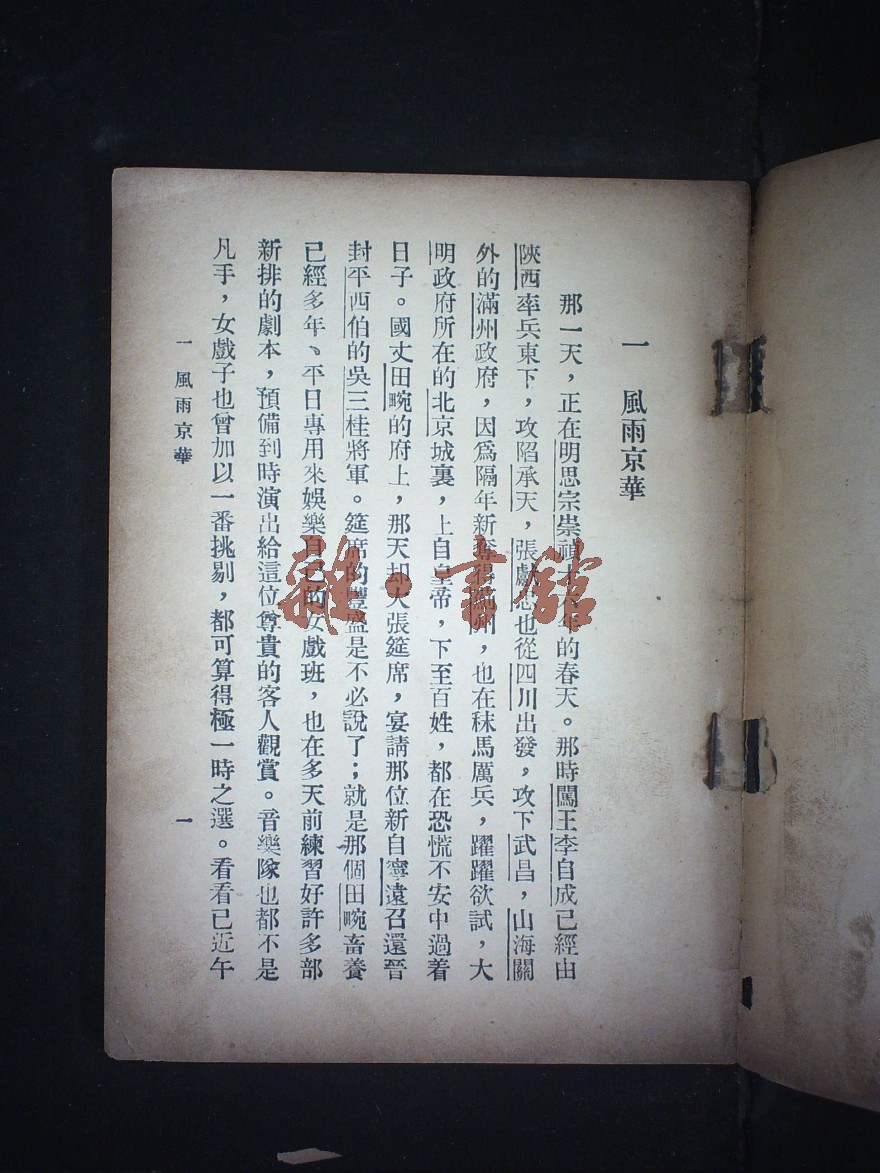 一 風雨京華
那一天，正在明思宗崇禎十六年的春天。那時闖王李自成已經由
陝西率兵東下，攻陷承天，張獻忠也從四川出發，攻下武昌，山海關
外的滿州政府，因爲隔年新奪得錦州，也在秣馬厲兵，躍躍欲試，大
明政府所在的北京城裏，上自皇帝，下至百姓，都在恐慌不安中過着
日子。國丈田畹的府上，那天却大張筵席，宴請那位新自寧遠召還晉
封平西伯的吳三桂將軍。筵席的豐盛是不必說了；就是那個田畹畜養
已經多年、平日專用來娛樂自己的女戲班，也在多天前練習好許多部
新排的劇本，預備到時演出給這位尊貴的客人觀賞。音樂隊也都不是
凡手，女戲子也曾加以一番挑剔，都可算得極一時之選。看看已近午
一 風雨京華
一
雜·書館